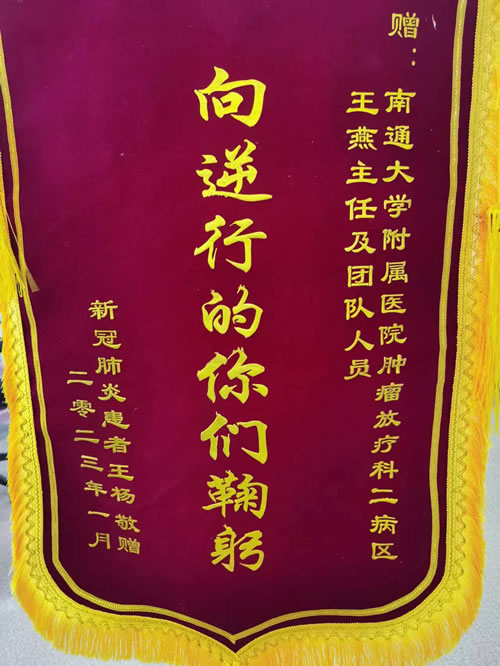 赠：
南通大学附属医院肿瘤放疗科二病区
王燕主任及团队人员
向逆行的你们鞠躬
新冠肺炎患者王杨敬赠
二零二三年一月